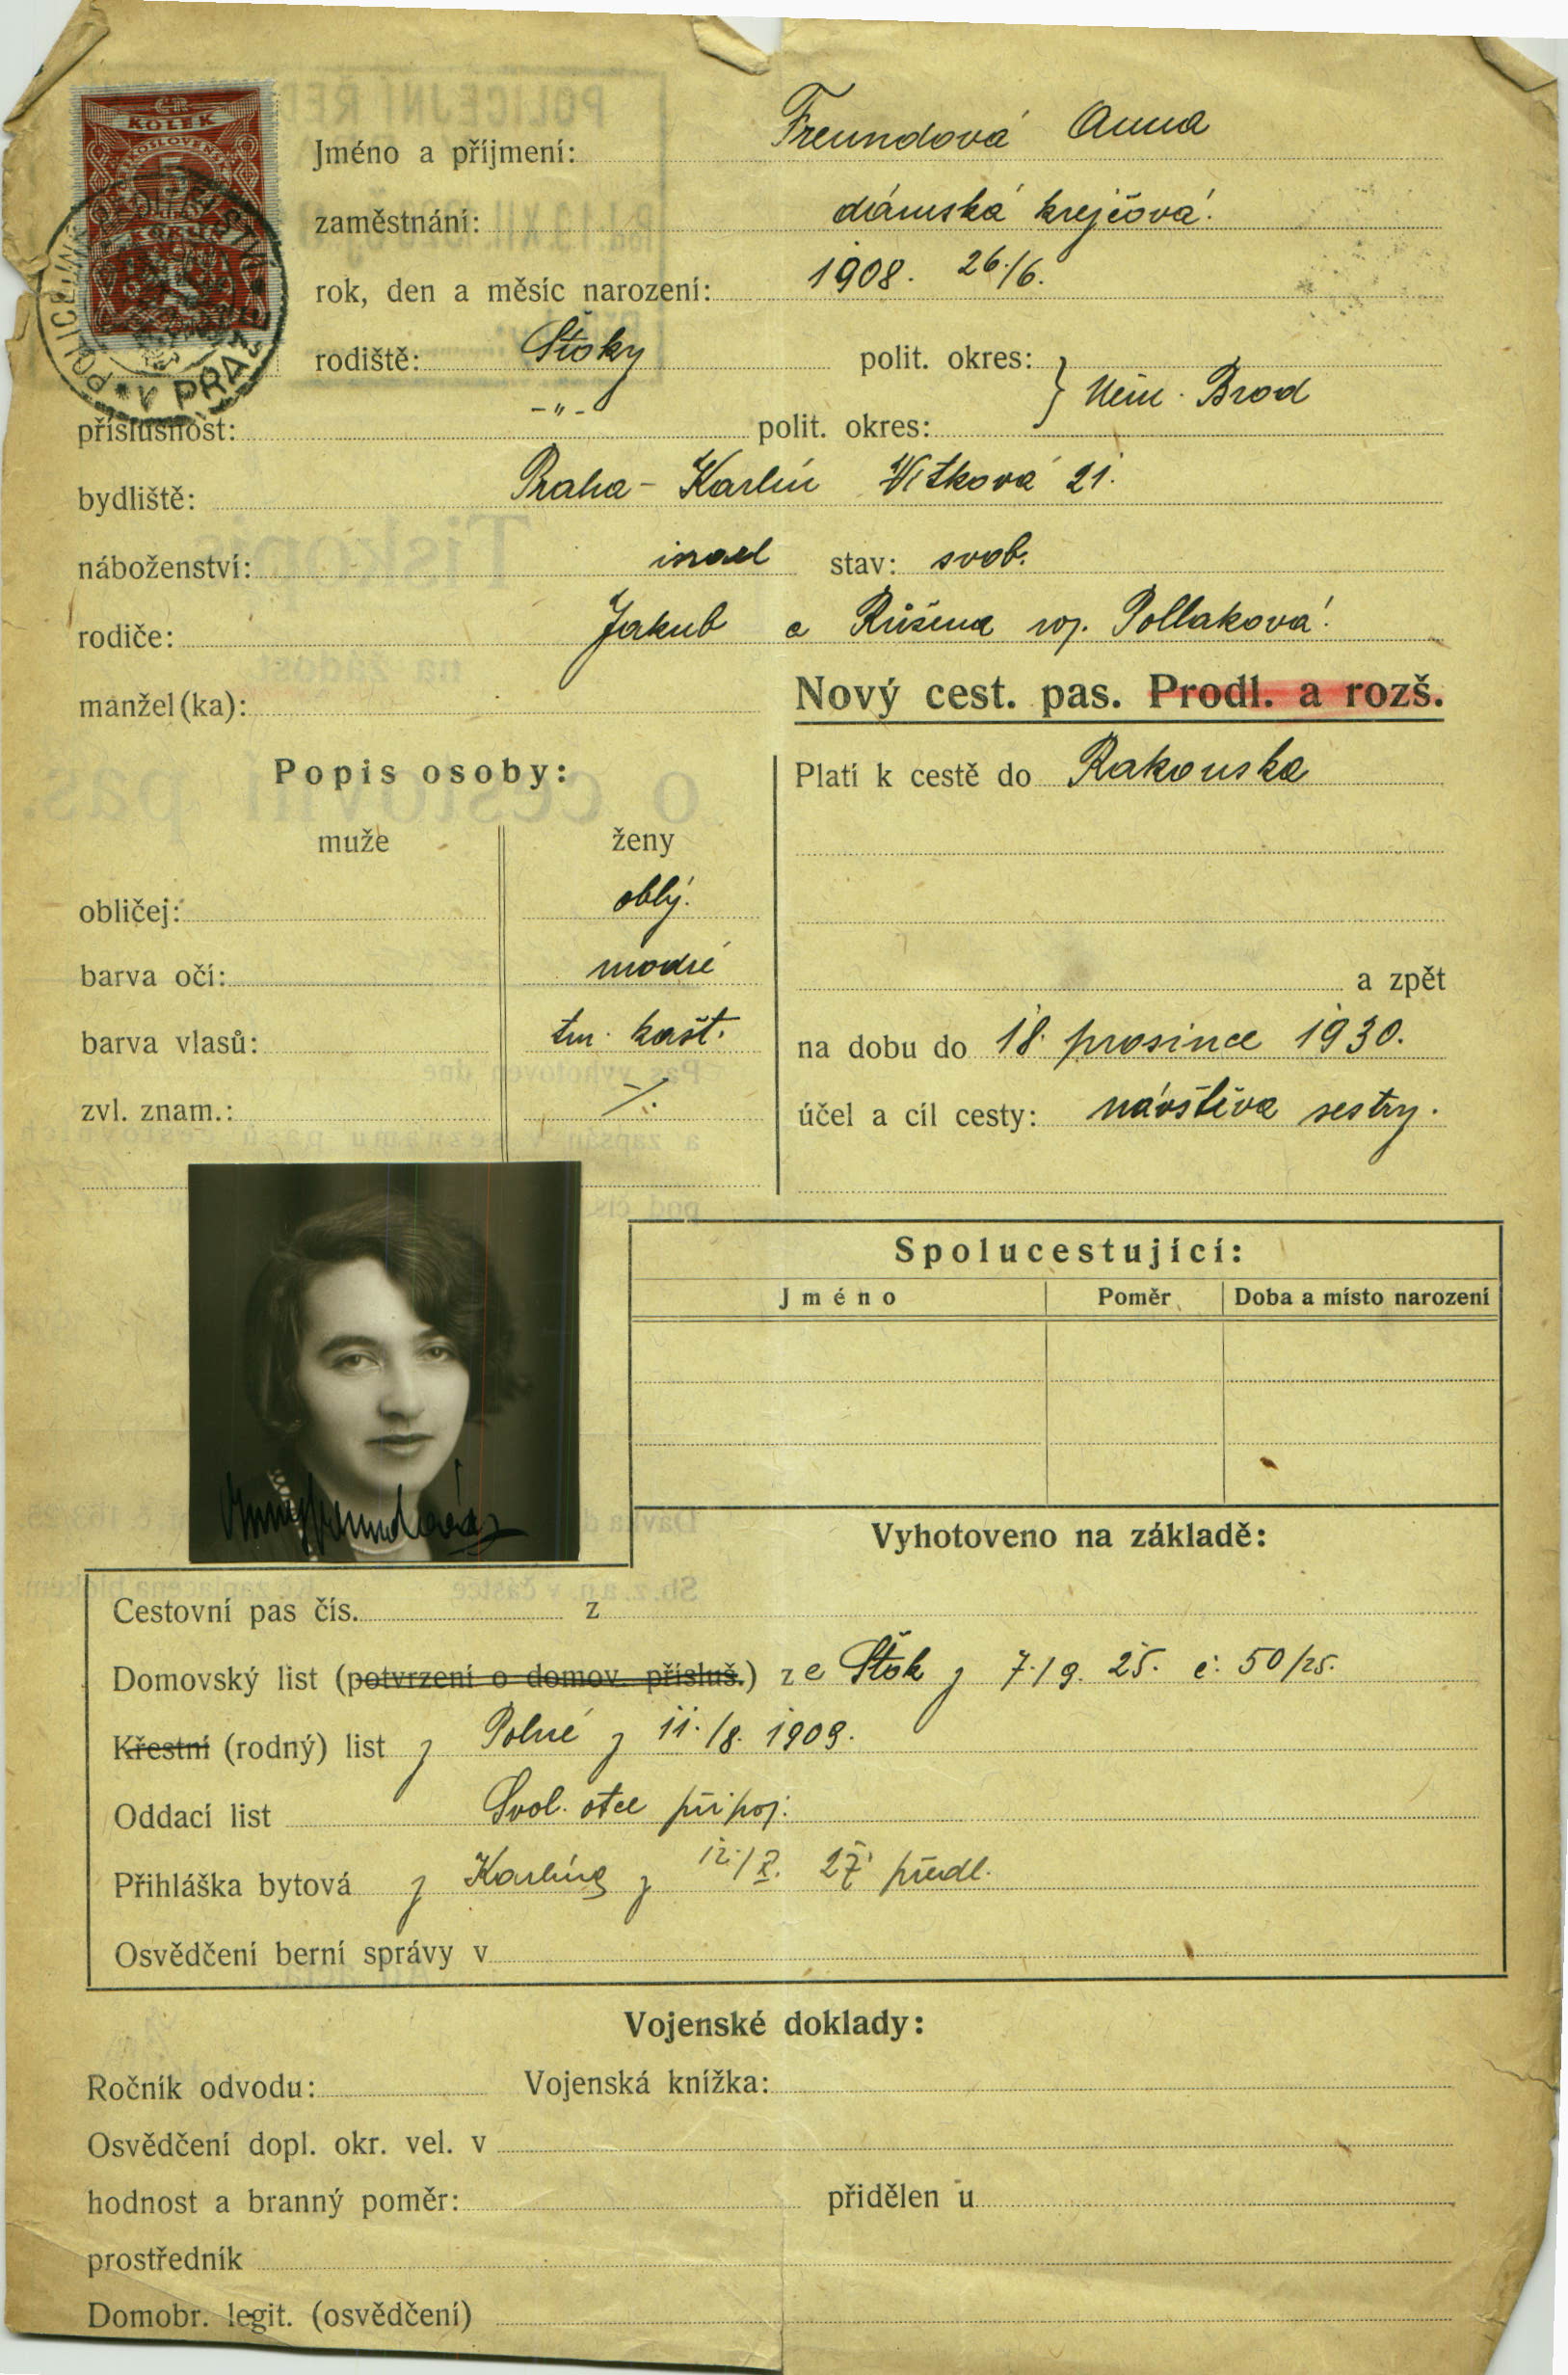 ČR
KOLEK
5
POLICEJNÍ ŘEDITELSTVÍ
* V PRAZE
Jméno a příjmení: Freundová Anna
zaměstnání: dámská krejčová.
rok, den a měsíc narození: 1908. 26./6.
rodiště: Štoky polit. okres:
příslušnost: -"- polit. okres: } Něm. Brod
bydliště: Praha - Karlín Vítkova 21.
náboženství: israel stav: svob.
rodiče: Jakub a Růžena roz. Pollaková.
manžel(ka):
Nový cest. pas. Prodl. a rozš.
Popis osoby:
muže ženy
obličej: oblý.
barva očí: modré
barva vlasů: tm. kašt.
zvl. znam.: ./.
Platí k cestě do Rakouska
a zpět
na dobu do 18. prosince 1930.
účel a cíl cesty: návštěva sestry.
Spolucestující:
Jméno Poměr Doba a místo narození
Vyhotoveno na základě:
Cestovní pas čís. z
Domovský list (potvrzení o domov. přísluš.) ze Štok z 7./9. 25. č. 50/25.
Křestní (rodný) list z Polné z 11./8. 1909.
Oddací list Svol. otce připoj.
Přihláška bytová z Karlína z 12./X. 27 předl.
Osvědčení berní správy v
Vojenské doklady:
Ročník odvodu: Vojenská knížka:
Osvědčení dopl. okr. vel. v
hodnost a branný poměr: přidělen u
prostředník
Domobr. legit. (osvědčení)